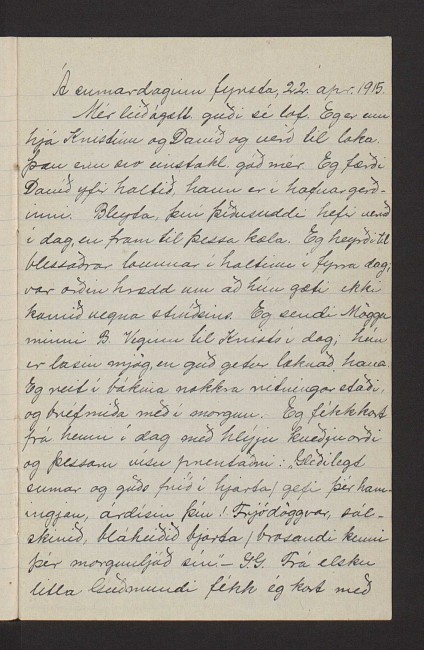 Á sumardaginn fyrsta, 22. apr. 1915.
Mér leið ágætl. guði sé lof. Eg er enn
hjá Kristínu og Davíð og verð til loka.
Þau eru svo einstakl. góð mér. Eg færði
Davíð yfir haltið. hann er í hafnargerð-
inni. Bleyta, því þíðusuddi hefi verið
í dag, en fram til þessa kæla. Eg heyrði til
blessaðrar lóunnar í holtinu í fyrra dag,
var orðin hrædd um að hún gæti ekki
komið vegna stríðsins. Eg sendi Mögga
minn B. Veginn til Kristó í dag; hún
er lasin mjög, en guð getur læknað hana.
Eg reit í bókina nokkra ritningar staði,
og bréfmiða með í morgun. Eg fékk kort
frá henni í dag með hlýju kveðjuorði
og þessari vísu prentaðri: Gleðilegt
sumar og guðs frið í hjarta / gefi þér ham-
ingjan, árdísin þín! Frjódöggvar, sól-
skinið, bláheiðið bjarta / brosandi kenni
þér morgunljóð sín." – G.G. Frá elsku
litla Guðmundi fékk ég kort með